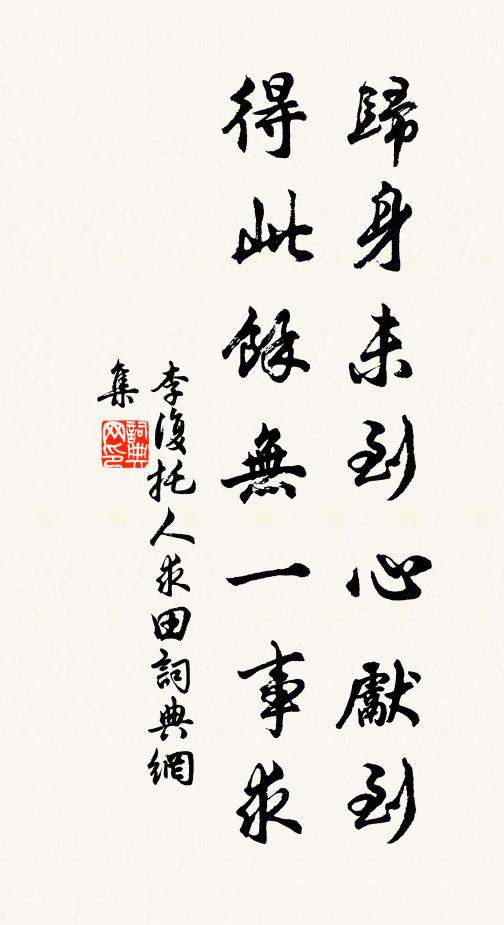 歸身未到心獻到
得此餘無一事求
李復托人求田詞典網
集
詞典
网印